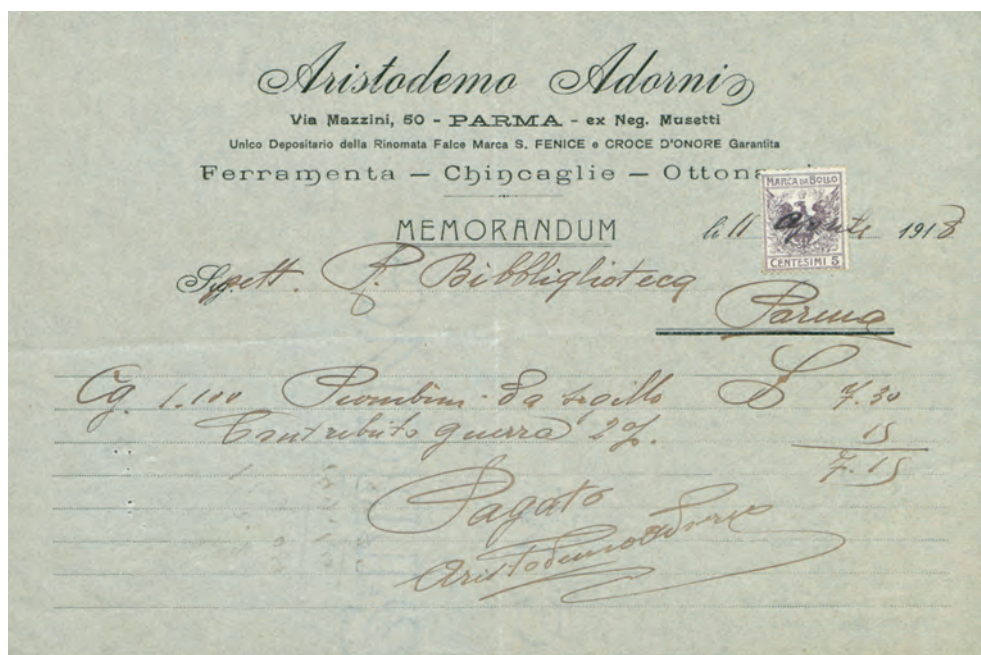 Aristodemo Adorni
Via Mazzini, 50 - PARMA - ex Neg. Musetti
Unico Depositario della Rinomata Falce Marca S. FENICE e CROCE D'ONORE Garantita
Ferramenta — Chincaglie — Ottona
MARCA DA BOLLO
MEMORANDUM
li 11 1918
CENTESIMI 5
Spett. R. Bibbliglioteca
Parma
Cg. 1.100 Piombini da £ 7.30
Contributo guerra 2%. 15
7.15
Pagato
Aristodemo Adorni